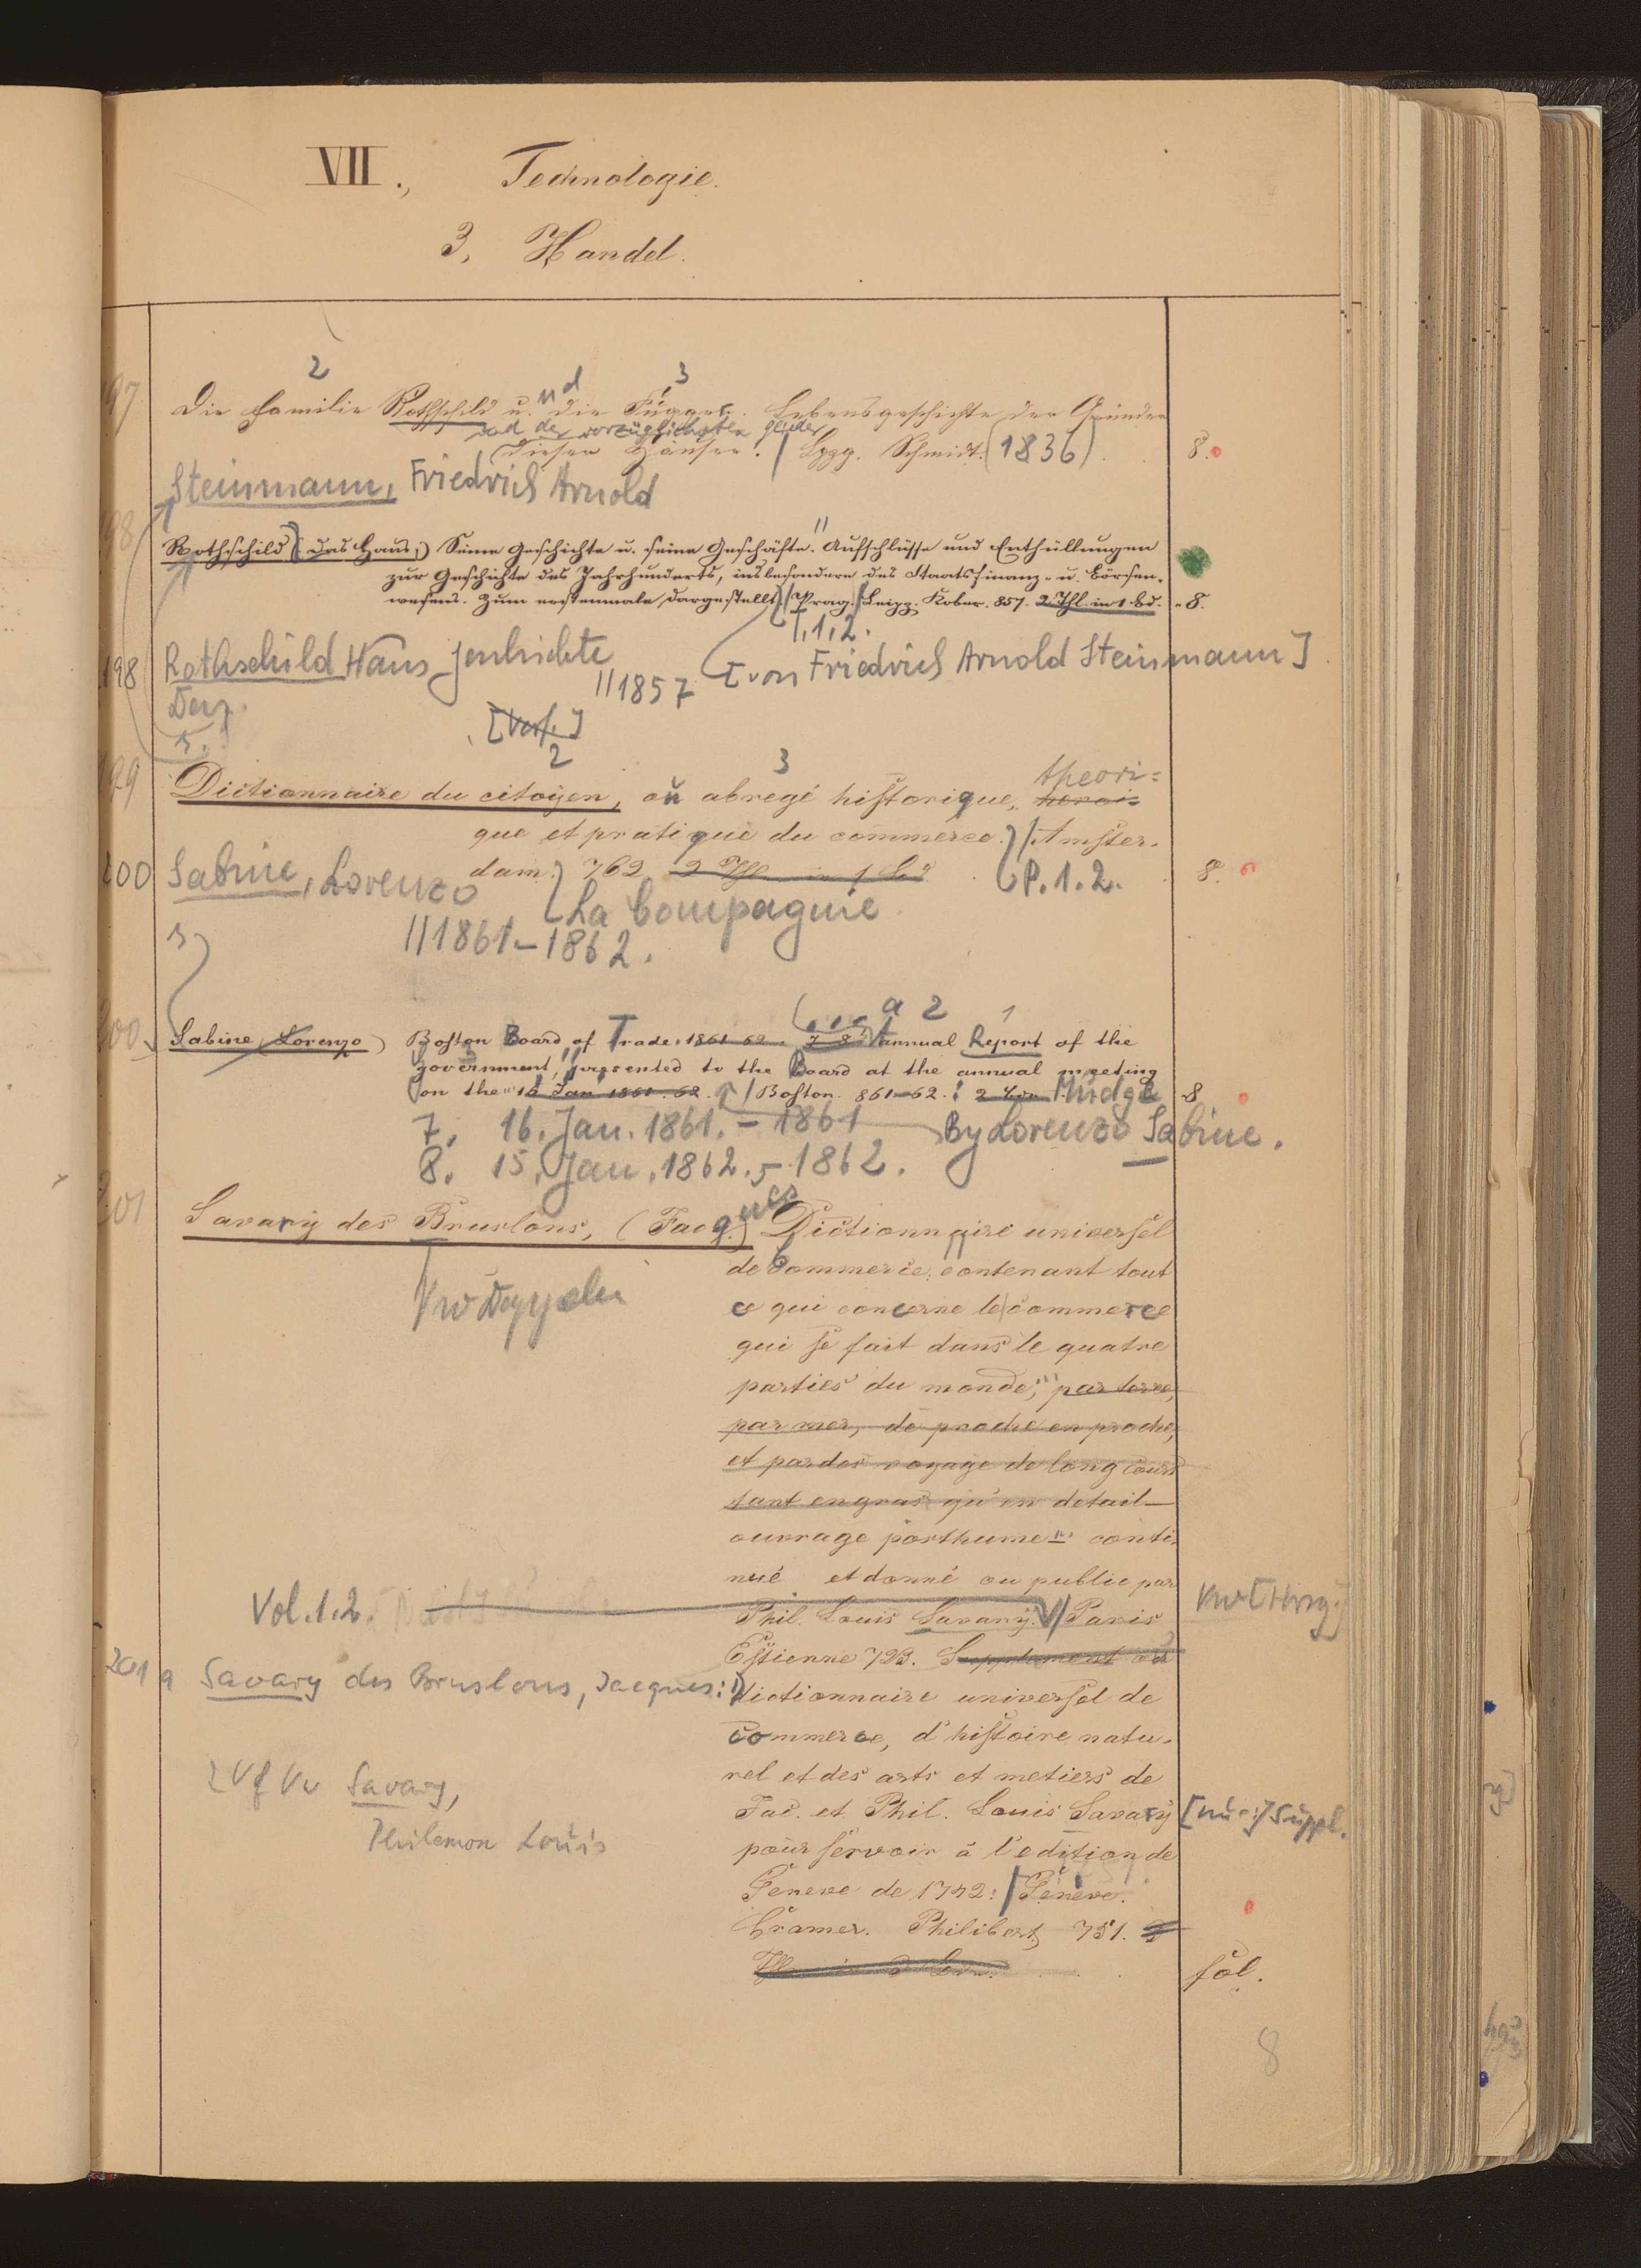 VII., Technologie.
3, Handel.
2 3
197 Die Familie Rothschild u. und die Fugger. Lebensgeschichte der Gründer
und der vorzüglichsten Glieder
dieser Häuser. / Lpzg. Schmidt. (1836) 8.
Steinmann, Friedrich Arnold
198 Rothschild (: das Haus,) Seine Geschichte u. seine Geschäfte. Aufschlüsse und Enthüllungen
zur Geschichte des Jahrhunderts, insbesondere des Staatsfinanz- u. Börsen-
wesens. Zum erstenmale dargestellt. / Prag. / Leipz. Kober. 857. 2 Thl. in 1 Bd. 8.
T. 1, 2.
198 Rothschild Haus Geschichte [von Friedrich Arnold Steinmann]
// 1857
[Verf.]
2 3
199 Dictionnaire du citoyen, où abregé historique, theori-
que et pratique du commerce.) / Amster-
dam. 762 2 Thl. in 1 Bd P. 1. 2. 8.
200 Sabine, Lorenzo
La Compagnie
// 1861-1862.
a 2 1
200 Sabine, Lorenzo) Boston Board of Trade. 1861-62. 7-8 Annual Report of the
government, presented to the Board at the annual meeting
on the 16 Jan 1861-62. / Boston. 861-62. 2 Mudge 8
7. 16. Jan. 1861. - 1861 By Lorenzo Sabine.
8. 15. Jan. 1862. - 1862.
201 Savary des Bruslons, (Jacques) Dictionnaire universel
de Commerce: contenant tout
ce qui concerne le commerce
qui se fait dans le quatre
parties du monde, par terre,
par mer, de proche en proche,
et par des voyage de long cours
tant en gros qu'en detail
ouvrage posthume conti-
nué et donné ou public par
Vol. 1. 2. Phil. Louis Savary. / Paris
Estienne 723. Supplement au
201 a Savary des Bruslons, Jacques: dictionnaire universel de
commerce, d'histoire natu-
rel et des arts et metiers de
2 Vf Vw Savary,
Jac. et Phil. Louis Savary Suppl.
Philemon Louis
pour servoir à l'edition de
Geneve de 1742: / Genève.
Cramer. Philibert 751.
fol.
8